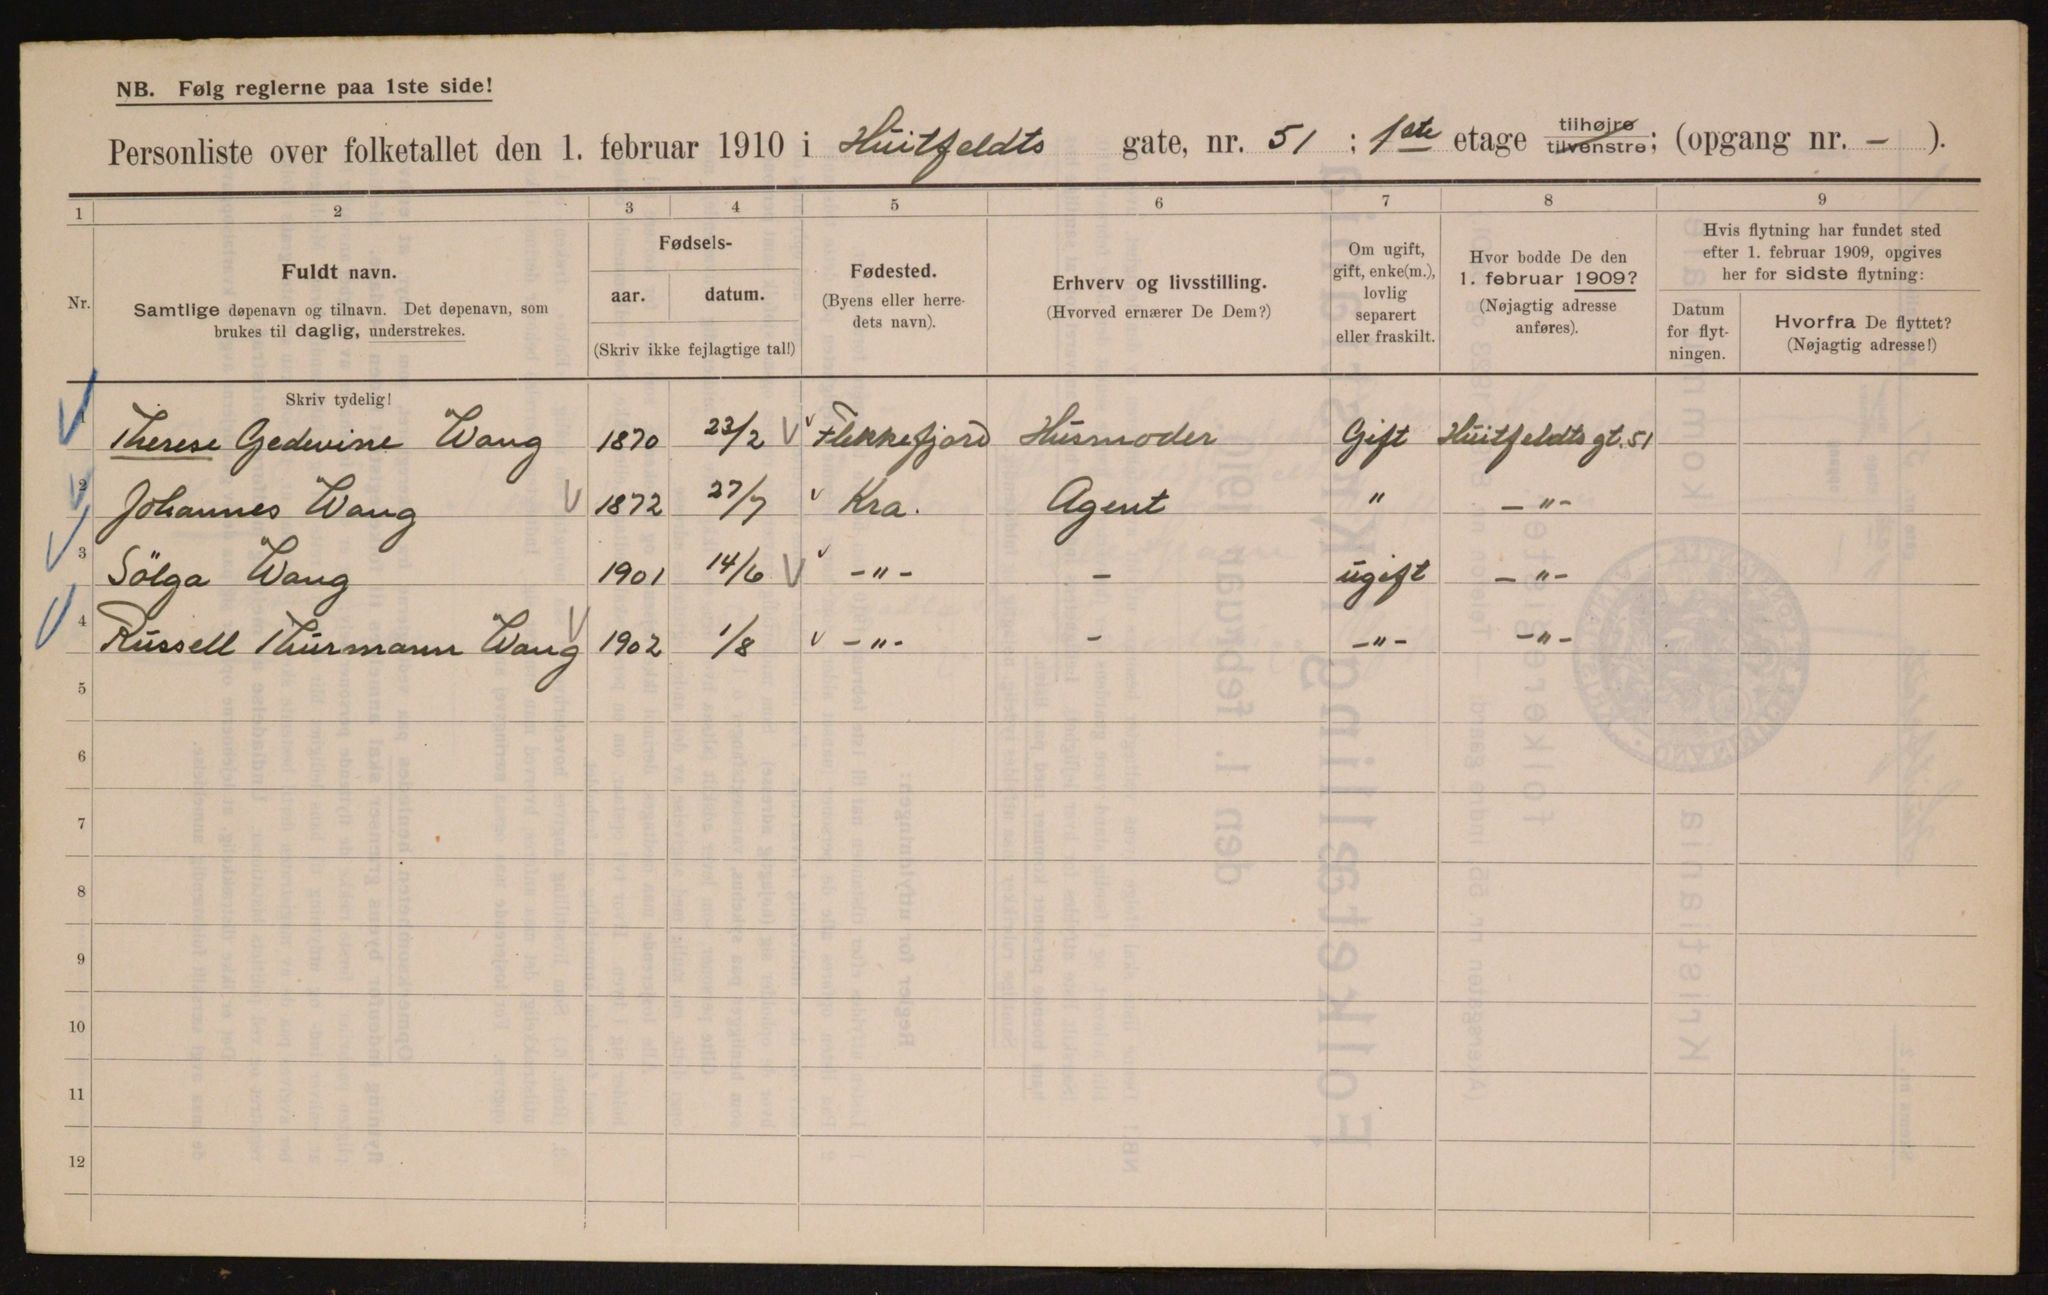 NB. Følg reglerne paa 1ste side!
Personliste over folketallet den 1. februar 1910 i Huitfeldts gate, nr. 51 ; 1ste etage tilhøire tilvenstre; (opgang nr. - ).
1 2 3 4 5 6 7 8 9
Nr.
Fuldt navn.
Samtlige døpenavn og tilnavn. Det døpenavn, som
brukes til daglig, understrekes.
Fødsels-
aar. datum.
(Skriv ikke fejlagtige tal!)
Fødested.
(Byens eller herre-
dets navn).
Erhverv og livsstilling.
(Hvorved ernærer De Dem?)
Om ugift,
gift, enke(m.),
lovlig
separert
eller fraskilt.
Hvor bodde De den
1. februar 1909?
(Nøjagtig adresse
anføres).
Hvis flytning har fundet sted
efter 1. februar 1909, opgives
her for sidste flytning:
Datum
for flyt-
ningen.
Hvorfra De flyttet?
(Nøjagtig adresse!)
Skriv tydelig!
1 Therese Gedevine Wang 1870 23/2 Flekkefjord Husmoder Gift Huitfeldts gt. 51
2 Johannes Wang 1872 27/7 Kra. Agent " - " -
3 Sölga Wang 1901 14/6 - " - - ugift - " -
4 Russell Thurmann Wang 1902 1/8 - " - - - " - - " -
5
6
7
8
9
10
11
12